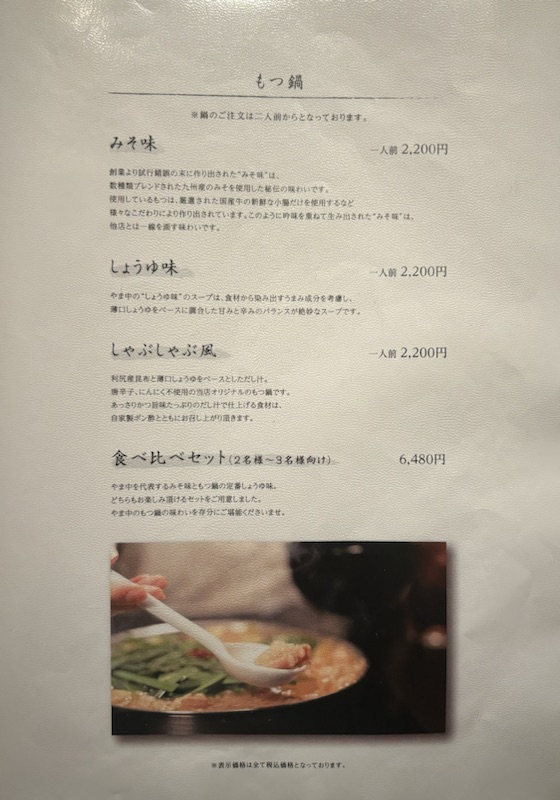 もつ鍋
※鍋のご注文は二人前からとなっております。
みそ味 一人前 2,200円
創業より試行錯誤の末に作り出された“みそ味”は、
数種類ブレンドされた九州産のみそを使用した秘伝の味わいです。
使用しているもつは、厳選された国産牛の新鮮な小腸だけを使用するなど
様々なこだわりにより作り出されています。このように吟味を重ねて生み出された“みそ味”は、
他店とは一線を画す味わいです。
しょうゆ味 一人前 2,200円
やま中の“しょうゆ味”のスープは、食材から染み出すうまみ成分を考慮し、
薄口しょうゆをベースに調合した甘みと辛みのバランスが絶妙なスープです。
しゃぶしゃぶ風 一人前 2,200円
利尻産昆布と薄口しょうゆをベースとしただし汁。
唐辛子、にんにく不使用の当店オリジナルのもつ鍋です。
あっさりかつ旨味たっぷりのだし汁で仕上げる食材は、
自家製ポン酢とともにお召し上がり頂きます。
食べ比べセット(2名様〜3名様向け) 6,480円
やま中を代表するみそ味ともつ鍋の定番しょうゆ味。
どちらもお楽しみ頂けるセットをご用意しました。
やま中のもつ鍋の味わいを存分にご堪能くださいませ。
※表示価格は全て税込価格となっております。